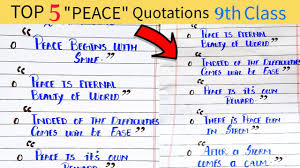 TOP 5 "PEACE" Quotations 9th Class
o "PEACE BEGINS WITH
SMILE."
o "PEACE IS ETERNAL
BEAUTY OF WORLD"
o "INDEED OF THE DIFFICULTIES
COMES WILL BE EASE"
o "PEACE IS IT'S OWN
REWARD"
o "PEACE IS ETERNAL
BEAUTY OF WORLD"
o "INDEED OF THE DIFFICULTIES
COMES WILL BE EASE"
o "PEACE IS IT'S OWN
REWARD"
o "THERE IS PEACE EVEN
IN STORM"
o "AFTER A STORM
COMES A CALM."